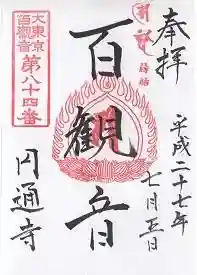 奉拝
平成二十七年
七月五日
百観音
大東京
百観音
第八十四番
円通寺